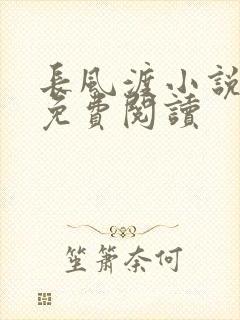 長風渡小說
免費閱讀
笙簫奈何